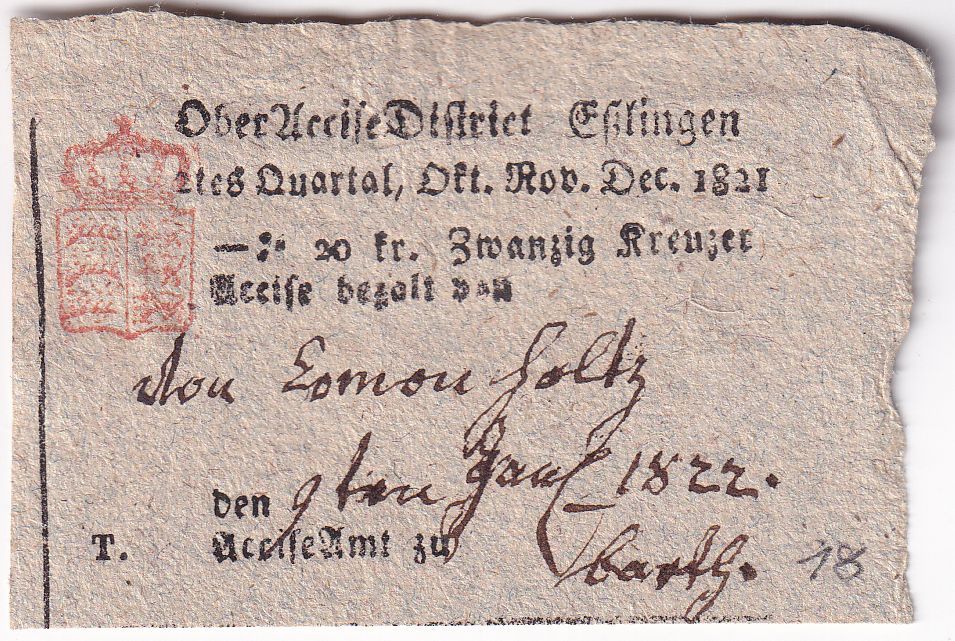 OberAcciseDistrict Eßlingen
2tes Quartal, Okt. Nov. Dec. 1821
—:• 20 kr. Zwanzig Kreuzer
Accise bezalt von
von holtz
den 9ten Jan 1822.
T. AcciseAmt zu
18